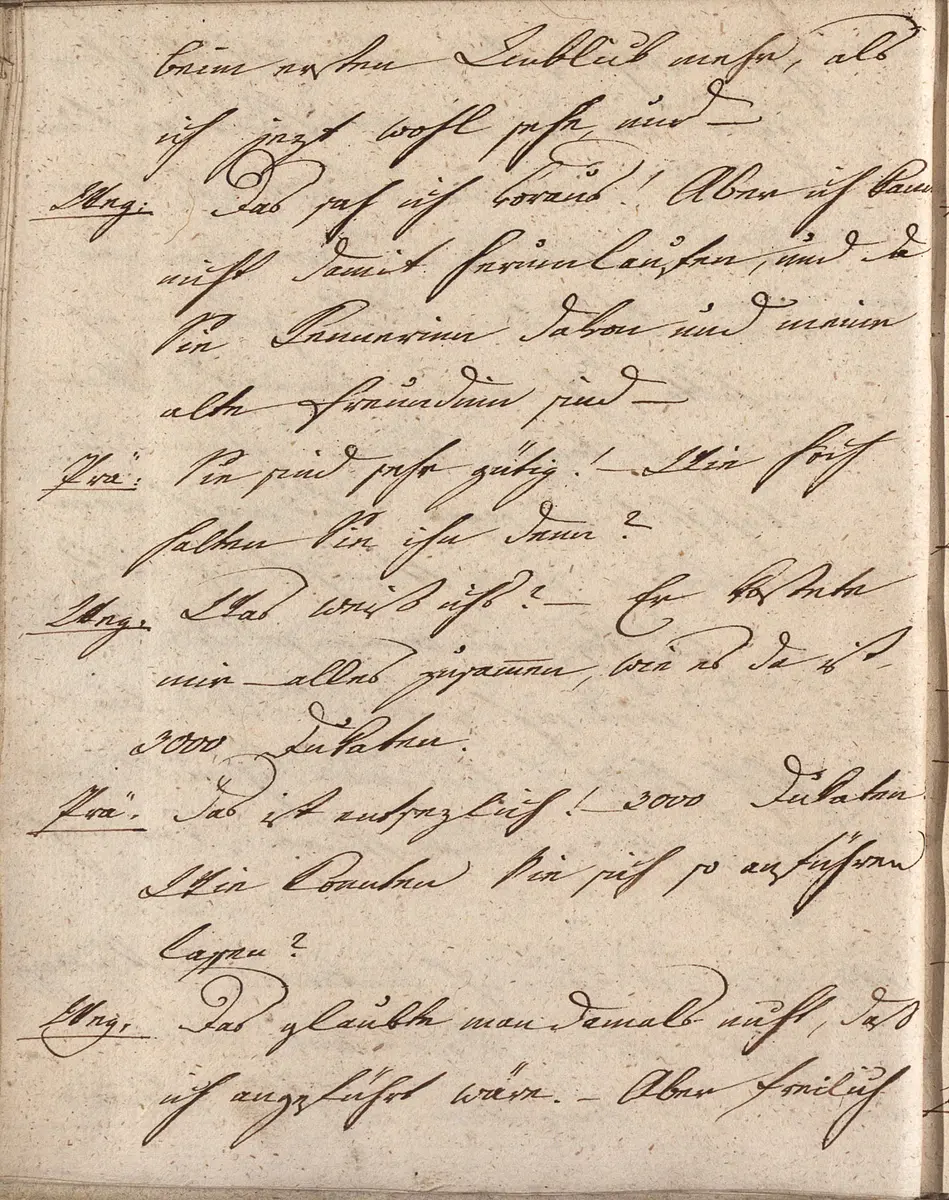 beim ersten Einblick mehr, als
ich jezt wohl sehe, und —
Weg: Das sah ich voraus! Aber ich kann
nicht damit herumlaufen, und da
Sie Kennerinn davon und meine
alte Freundinn sind —
Prä: Sie sind sehr gütig! — Wie hoch
halten Sie ihn denn?
Weg. Was weiß ichs? — Er kostete
mir — alles zusammen, wie es da ist,
3000 Dukaten.
Prä. Das ist entsezlich! — 3000 Dukaten
Wie konnten Sie sich so anführen
lassen?
Weg. Das glaubte man damals nicht, daß
ich angeführt wäre. — Aber freilich